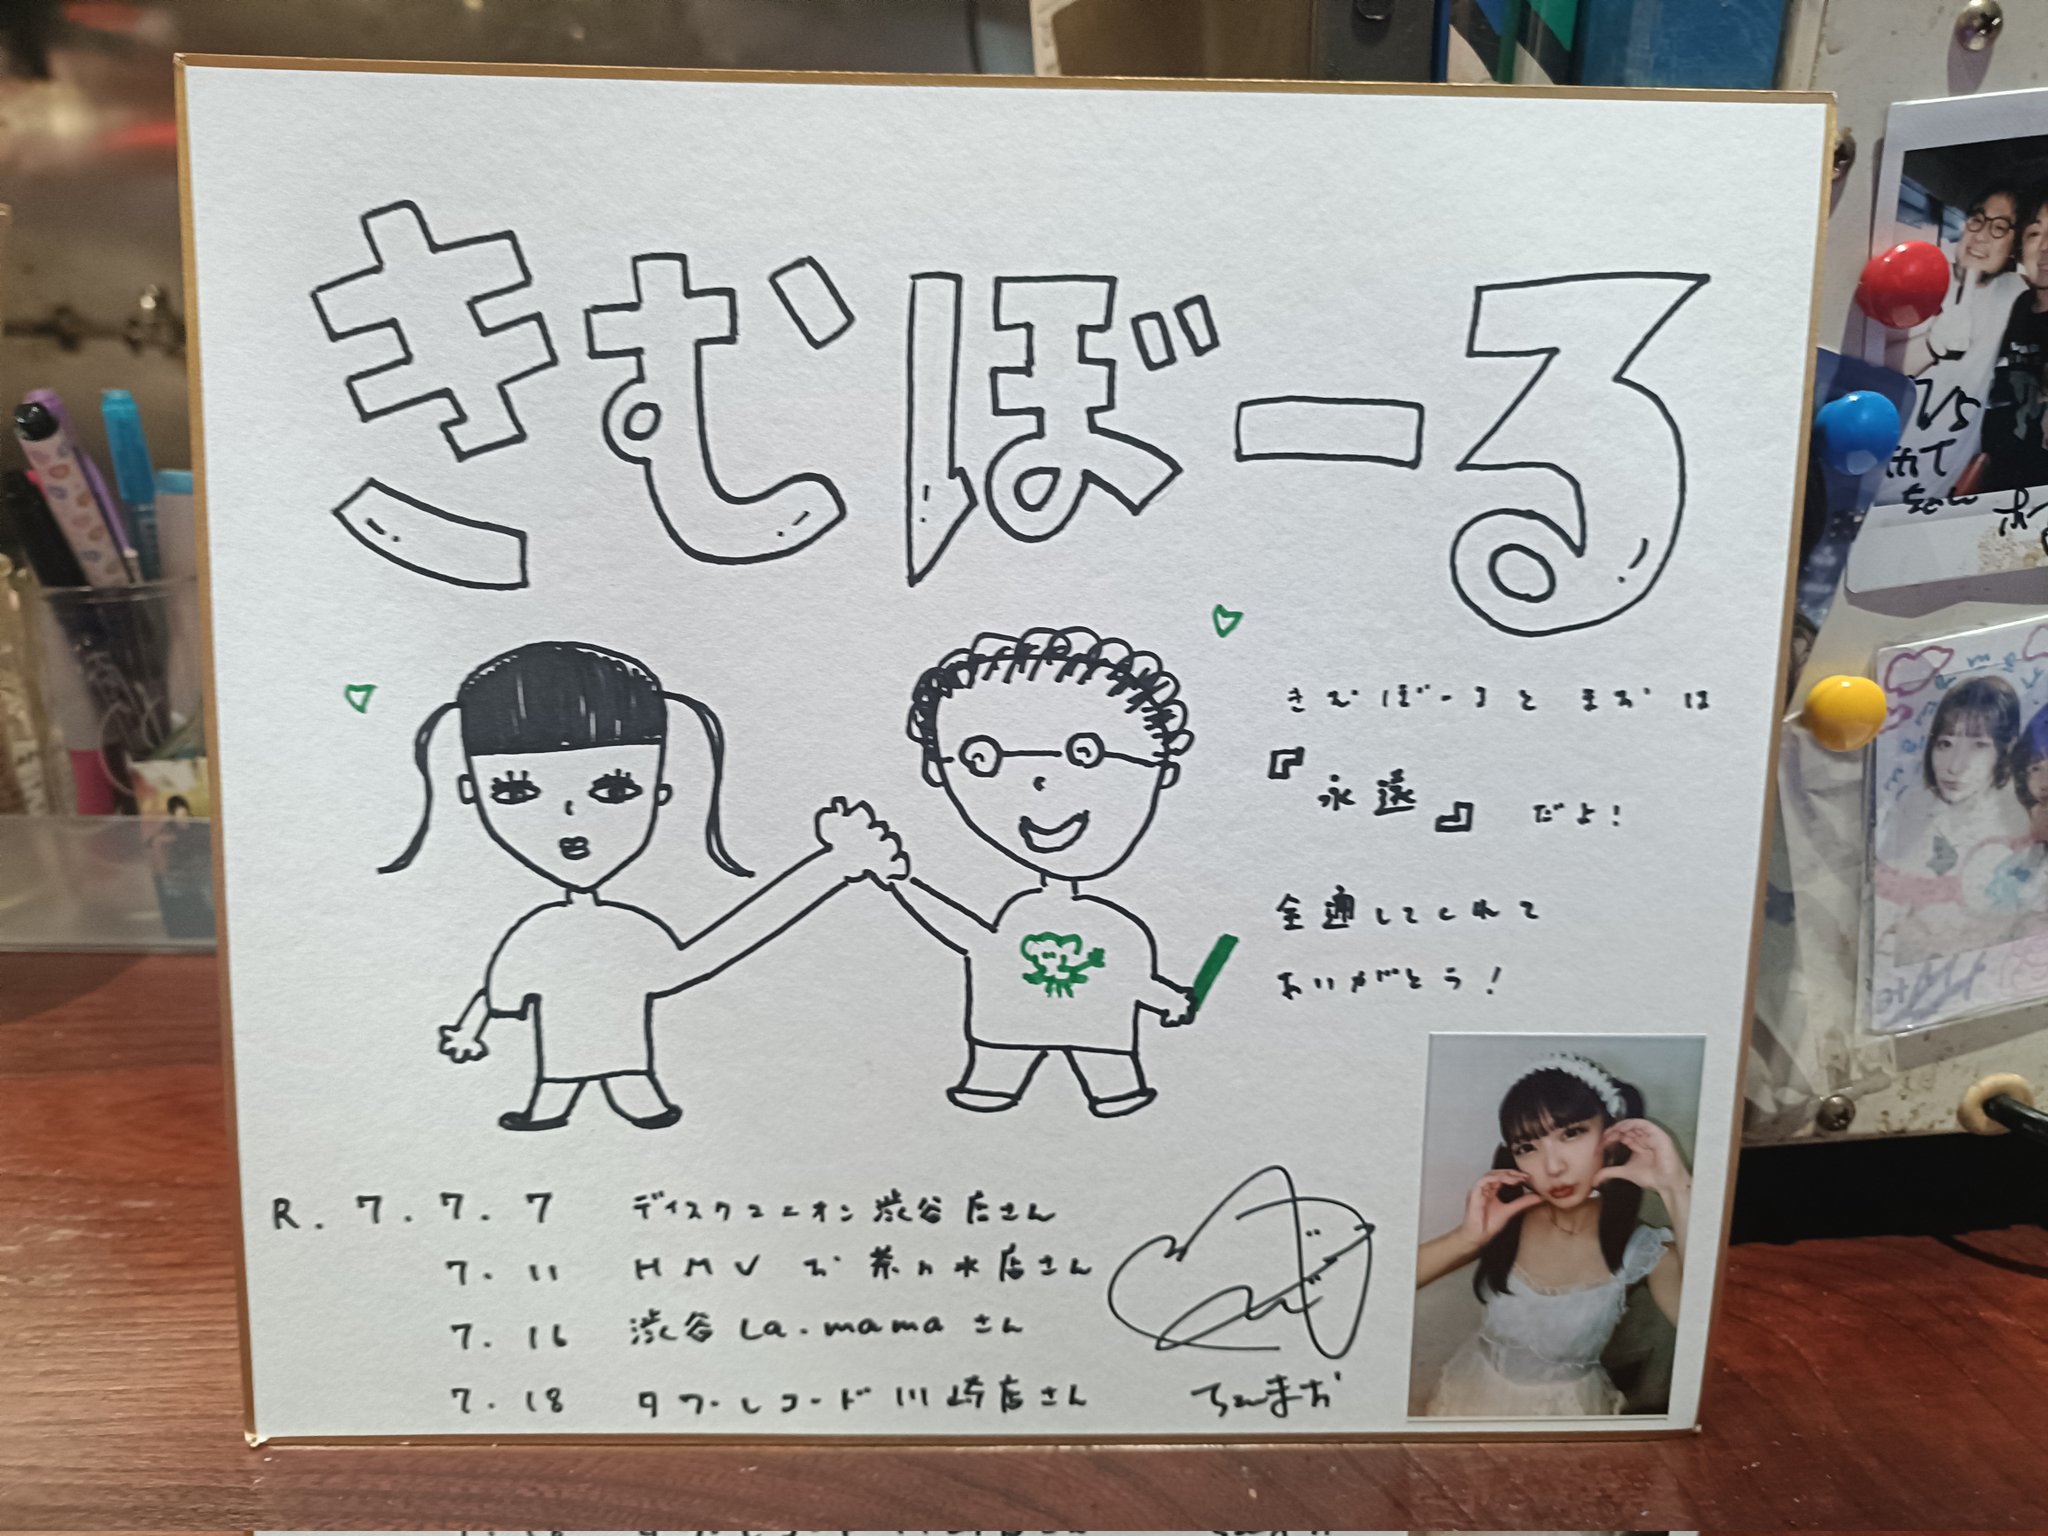 きむぼーる
きむぼーると まおは
『永遠』だよ!
全通してくれて
ありがとう!
R.7.7.7 ディスクユニオン渋谷店さん
7.11 HMVお茶の水店さん
7.16 渋谷La.mamaさん
7.18 タワーレコード川崎店さん
VS